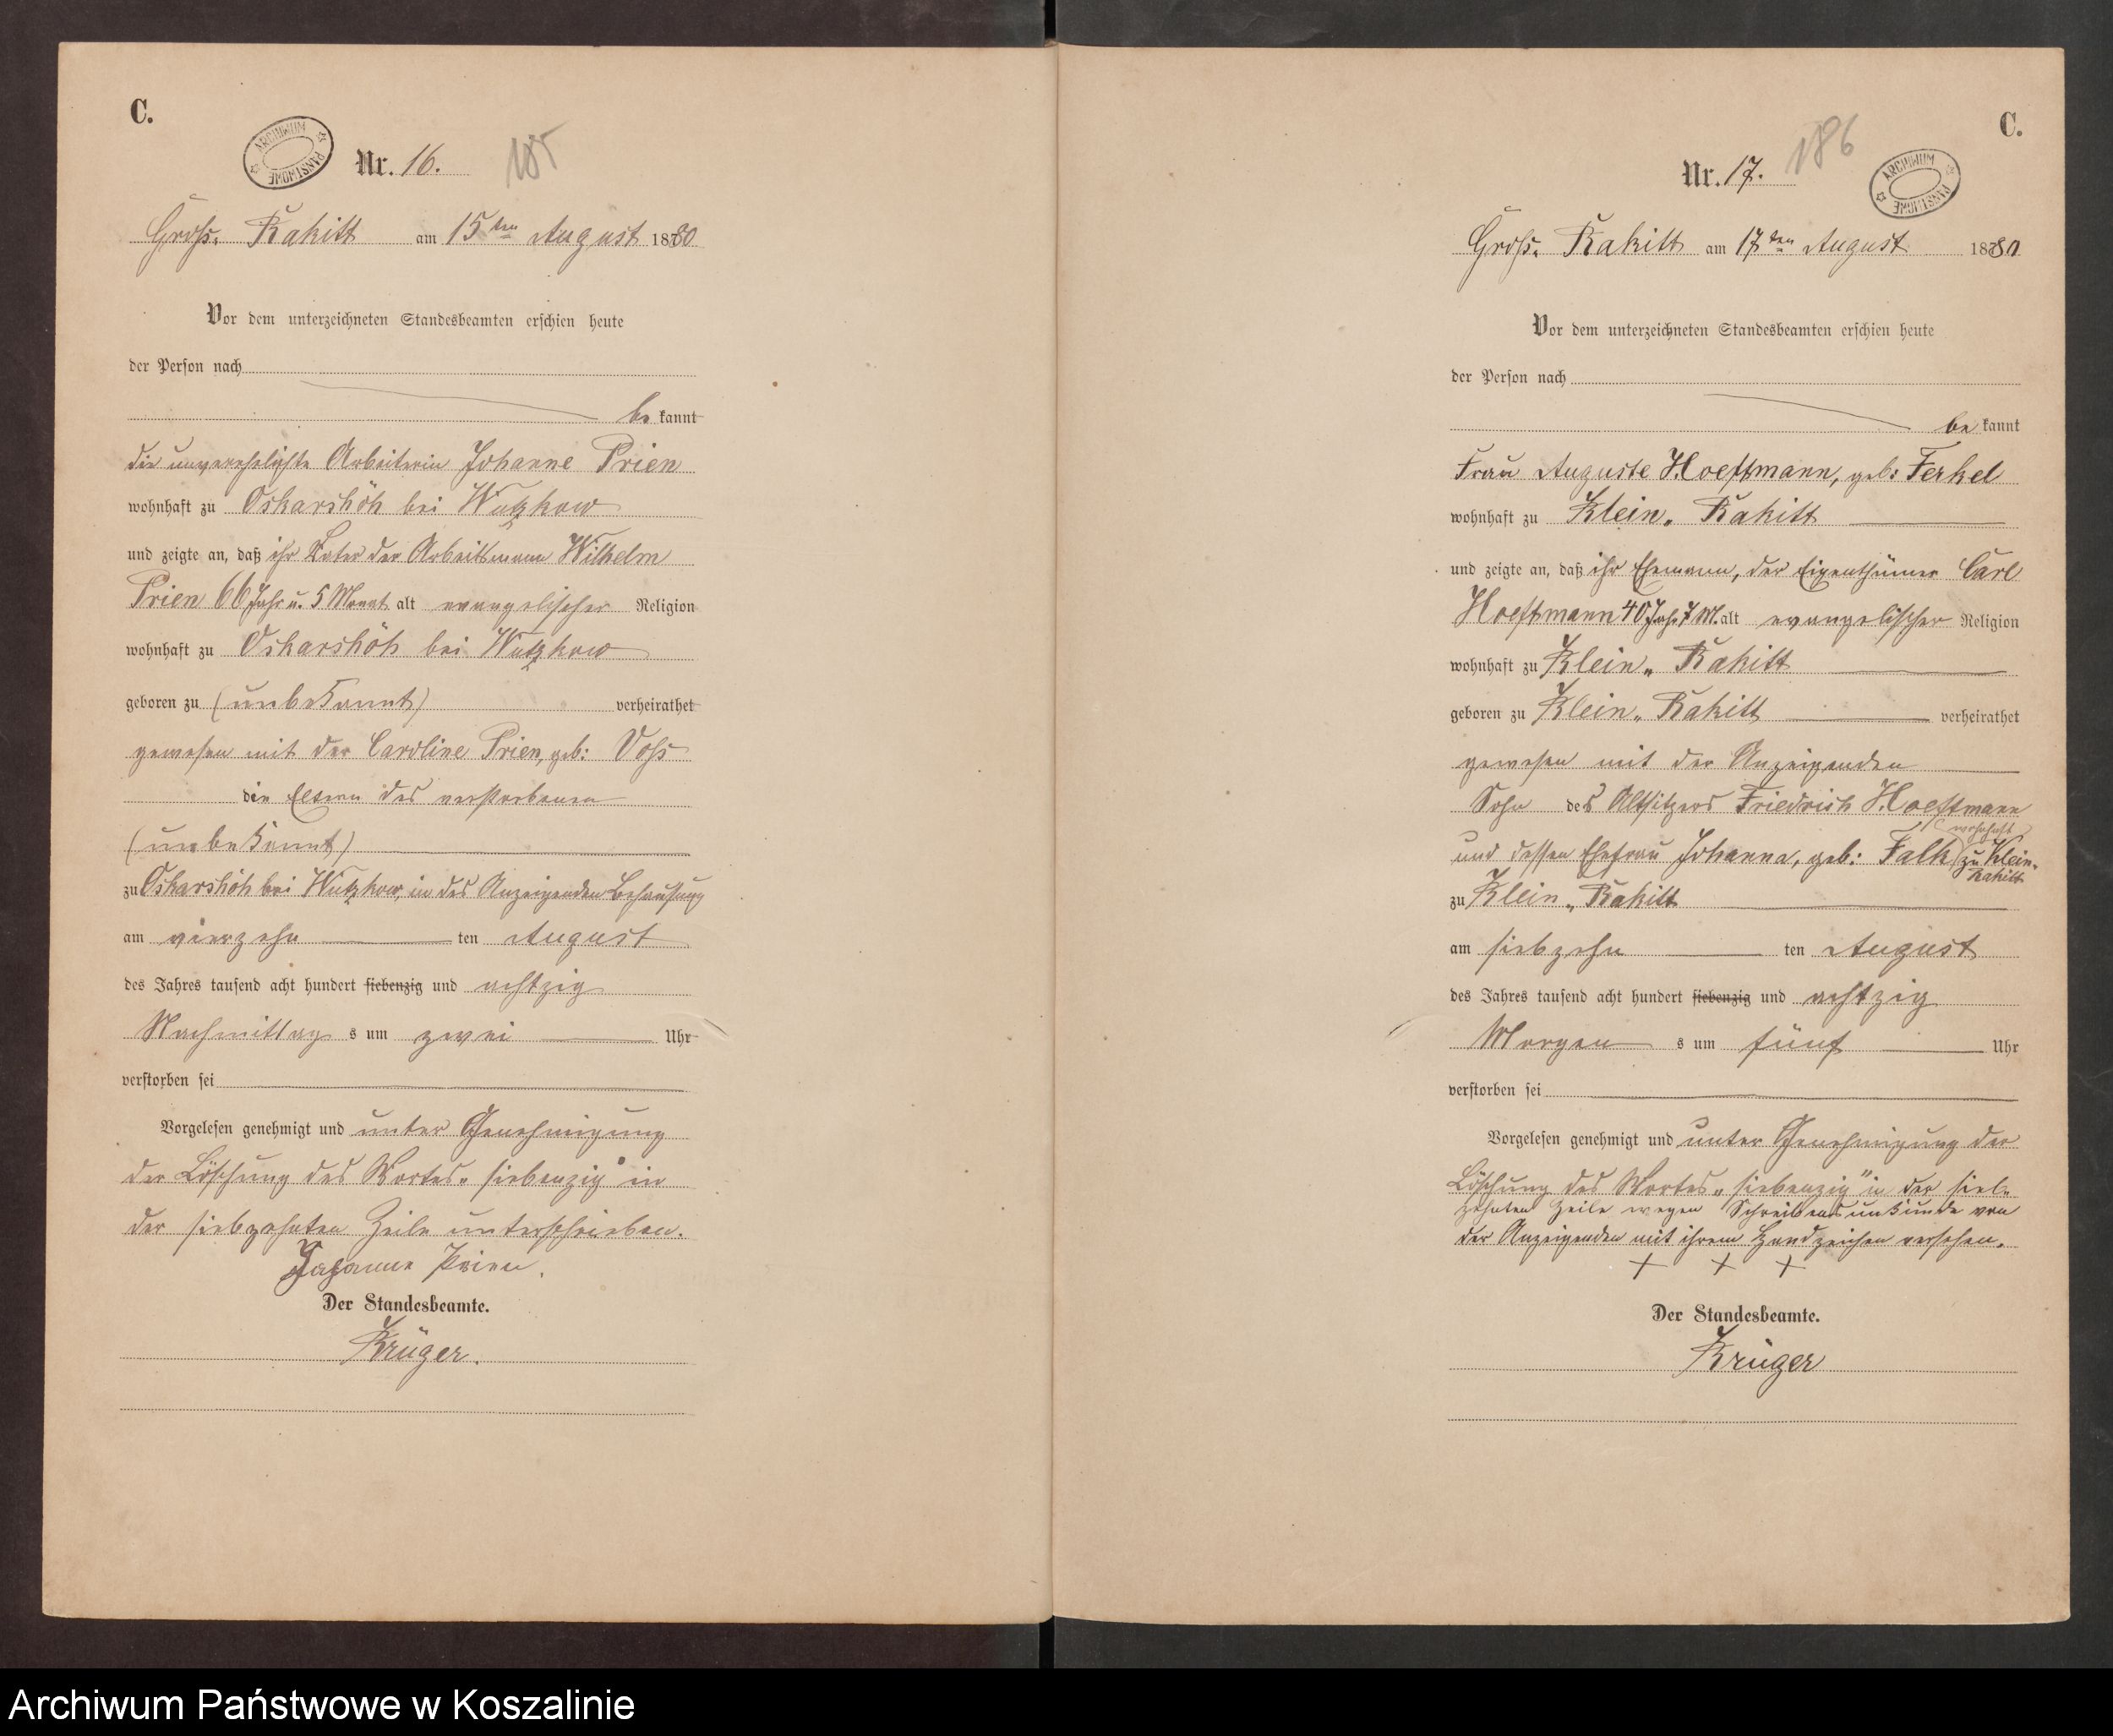 C.
ARCHIWUM PAŃSTWOWE
Nr. 16.
185
Groß- Rakitt am 15ten August 1880
Vor dem unterzeichneten Standesbeamten erschien heute
der Person nach
be kannt
die unverehelichte Arbeiterin Johanne Prien
wohnhaft zu Oskarshöh bei Wutzkow
und zeigte an, daß ihr Vater der Arbeitsmann Wilhelm
Prien 66 Jahr u. 5 Monat alt evangelischer Religion
wohnhaft zu Oskarshöh bei Wutzkow
geboren zu (unbekannt) verheirathet
gewesen mit der Caroline Prien, geb: Voß
die Eltern des verstorbenen
(unbekannt)
zu Oskarshöh bei Wutzkow, in des Anzeigenden Behausung
am vierzehn ten August
des Jahres tausend acht hundert siebenzig und achtzig
Nachmittag s um zwei Uhr
verstorben sei
Vorgelesen genehmigt und unter Genehmigung
der Löschung des Wortes „siebenzig" in
der siebzehnten Zeile unterschrieben.
Johanne Prien.
Der Standesbeamte.
Krüger.
C.
ARCHIWUM PAŃSTWOWE
Nr. 17.
186
Groß- Rakitt am 17ten August 1880
Vor dem unterzeichneten Standesbeamten erschien heute
der Person nach
be kannt
Frau Auguste Hoeftmann, geb: Ferkel
wohnhaft zu Klein- Rakitt
und zeigte an, daß ihr Ehemann, der Eigenthümer Carl
Hoeftmann 40 Jah. 7 M. alt evangelischer Religion
wohnhaft zu Klein- Rakitt
geboren zu Klein- Rakitt verheirathet
gewesen mit der Anzeigenden
Sohn des Altsitzers Friedrich Hoeftmann
und dessen Ehefrau Johanna, geb: Falk (wohnhaft zu Klein-Rakitt
zu Klein- Rakitt
am siebzehn ten August
des Jahres tausend acht hundert siebenzig und achtzig
Morgen s um fünf Uhr
verstorben sei
Vorgelesen genehmigt und unter Genehmigung der
Löschung des Wortes „siebenzig" in der sieb-
zehnten Zeile wegen Schreibensunkunde von
der Anzeigenden mit ihrem Handzeichen versehen.
+ + +
Der Standesbeamte.
Krüger
Archiwum Państwowe w Koszalinie